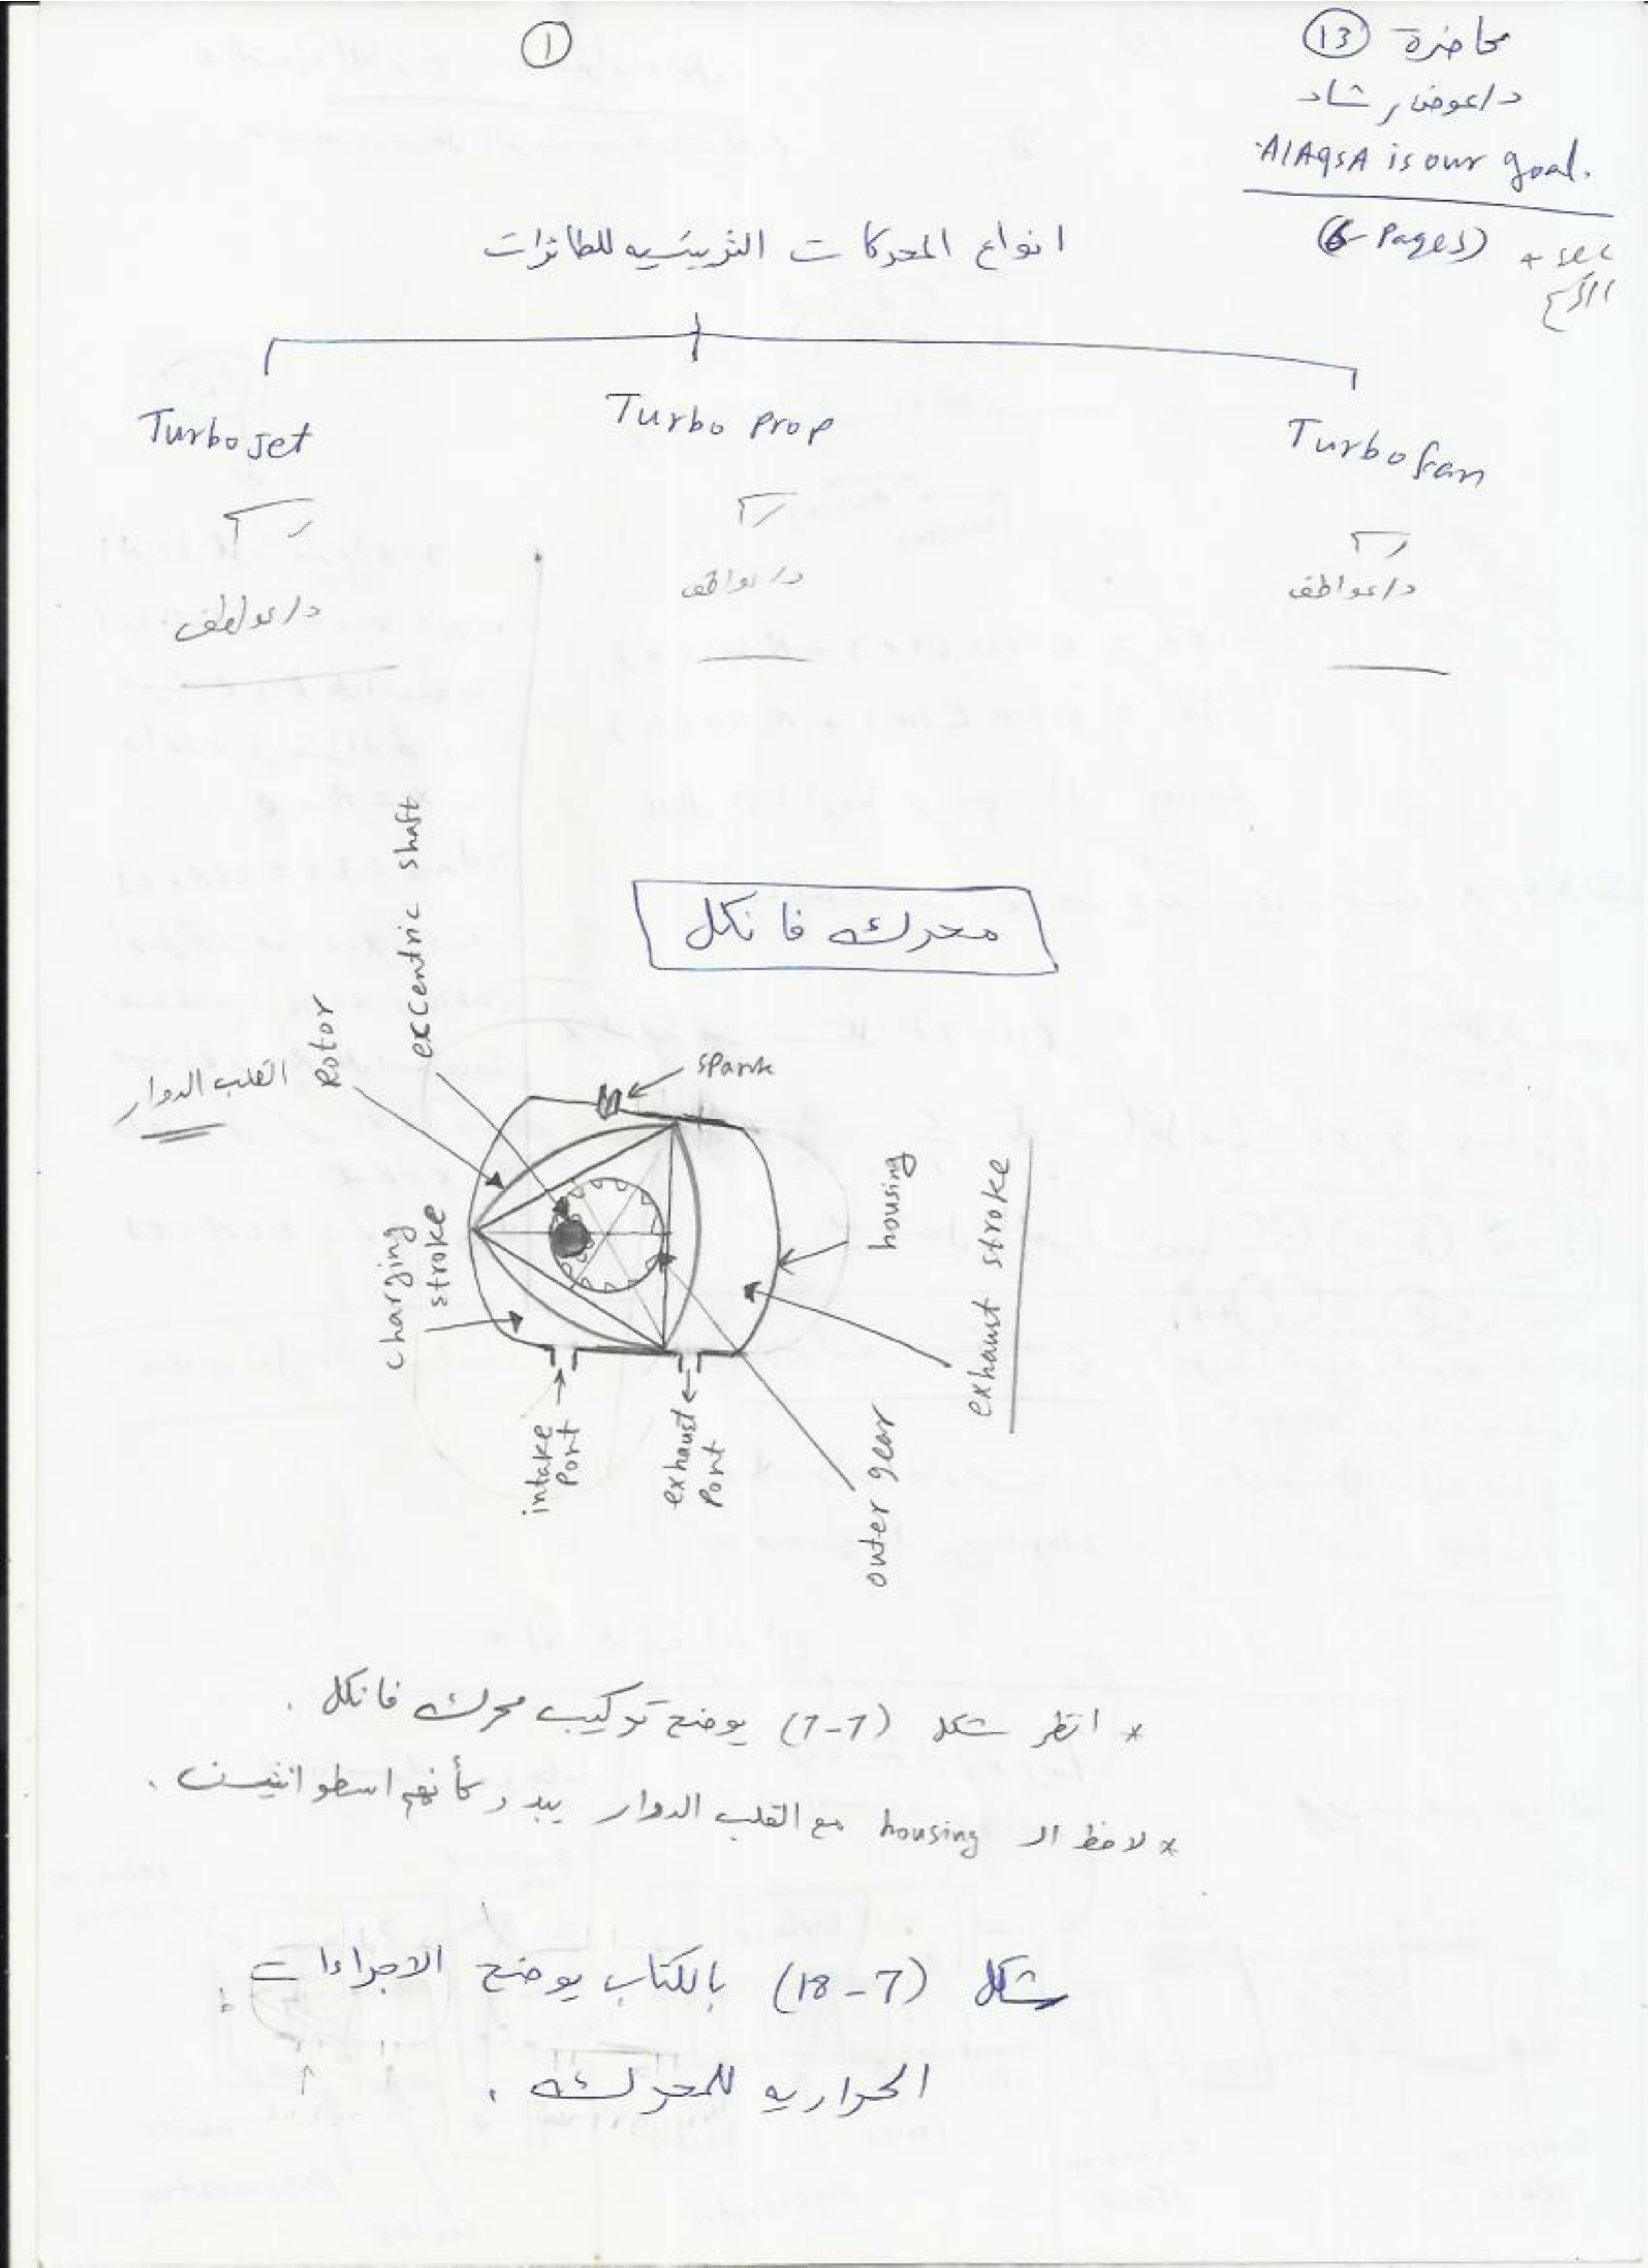 1
محاضرة 13
د/عوض رشاد
AlAqsA is our goal.
(6 Pages)
+ sec
انواع المحركات التربينيه للطائرات
Turbojet
Turbo prop
Turbofan
د/عواطف
د/عواطف
د/عواطف
محرك فانكل
excentric shaft
Rotor
القلب الدوار
spark
charging stroke
housing
exhaust stroke
intake Port
exhaust Port
outer gear
* انظر شكل (7-7) يوضح تركيب محرك فانكل .
* لاحظ الـ housing مع القلب الدوار يبدو كأنهم اسطوانتين .
شكل (7-18) بالكتاب يوضح الاجراءات
الحراريه للمحرك .